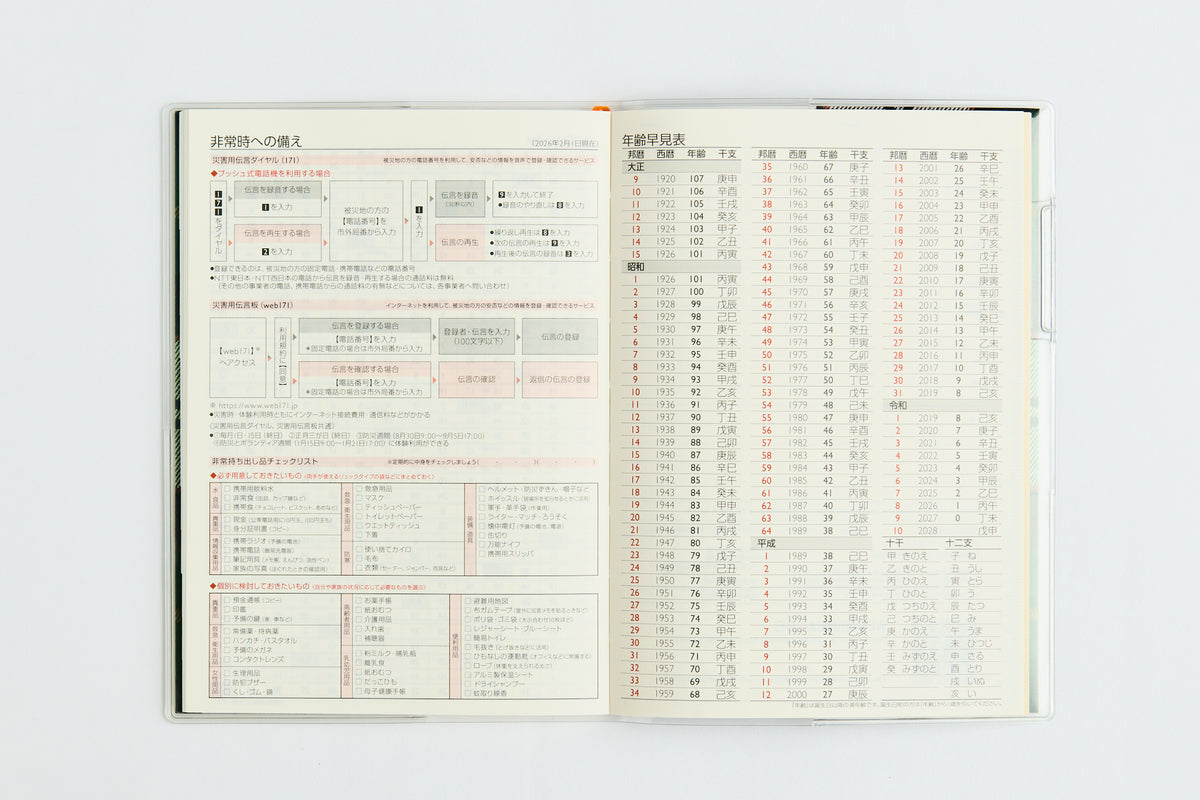 非常時への備え
(2026年2月1日現在)
災害用伝言ダイヤル(171)
被災地の方の電話番号を利用して、安否などの情報を音声で登録・確認できるサービス
◆プッシュ式電話機を利用する場合
171をダイヤル
伝言を録音する場合
1を入力
伝言を再生する場合
2を入力
被災地の方の
【電話番号】を
市外局番から入力
1を入力
伝言を録音
(30秒以内)
9を入力して終了
●録音のやり直しは8を入力
伝言の再生
●繰り返し再生は8を入力
●次の伝言の再生は9を入力
●再生後の伝言の録音は3を入力
●登録できるのは、被災地の方の固定電話・携帯電話などの電話番号
●NTT東日本・NTT西日本の電話から伝言を録音・再生する場合の通話料は無料
(その他の事業者の電話、携帯電話からの通話料の有無などについては、各事業者へ問い合わせ)
災害用伝言板(web171)
インターネットを利用して、被災地の方の安否などの情報を登録・確認できるサービス
【web171】※
へアクセス
利用規約に【同意】
伝言を登録する場合
【電話番号】を入力
※固定電話の場合は市外局番から入力
登録者・伝言を入力
(100文字以下)
伝言の登録
伝言を確認する場合
【電話番号】を入力
※固定電話の場合は市外局番から入力
伝言の確認
返信の伝言の登録
※ https://www.web171.jp
●災害時・体験利用時ともにインターネット接続費用・通信料などがかかる
(災害用伝言ダイヤル、災害用伝言板共通)
●①毎月1日・15日(終日) ②正月三が日(終日) ③防災週間(8月30日9:00〜9月5日17:00)
④防災とボランティア週間(1月15日9:00〜1月21日17:00)に体験利用ができる
非常持ち出し品チェックリスト
※定期的に中身をチェックしましょう( ・ ・ )( ・ ・ )
◆必ず用意しておきたいもの(両手が使えるリュックタイプの袋などにまとめておく)
水・食品
□携帯用飲料水
□非常食(缶詰、カップ麺など)
□携帯食(チョコレート、ビスケット、あめなど)
貴重品
□現金(公衆電話用に10円玉、100円玉も)
□身分証明書(コピー)
情報収集用品
□携帯ラジオ(予備の電池)
□携帯電話(簡易充電器)
□筆記用具(メモ帳、えんぴつ、油性ペン)
□家族の写真(はぐれたときの確認用)
救急・衛生用品
□救急用品
□マスク
□ティッシュペーパー
□トイレットペーパー
□ウエットティッシュ
□下着
防寒
□使い捨てカイロ
□毛布
□衣類(セーター、ジャンパー、雨具など)
装備・道具
□ヘルメット・防災ずきん・帽子など
□ホイッスル(居場所を知らせるときに活用)
□軍手・革手袋(作業用)
□ライター・マッチ・ろうそく
□懐中電灯(予備の電池、電源)
□缶切り
□万能ナイフ
□携帯用スリッパ
◆個別に検討しておきたいもの(自分や家族の状況に応じて必要なものを選ぶ)
貴重品
□預金通帳(コピー)
□印鑑
□予備の鍵(家、車など)
救急・衛生用品
□常備薬・持病薬
□ハンカチ・バスタオル
□予備のメガネ
□コンタクトレンズ
女性用品
□生理用品
□防犯ブザー
□くし・ゴム・鏡
高齢者用品
□お薬手帳
□紙おむつ
□介護用品
□入れ歯
□補聴器
乳幼児用品
□粉ミルク・哺乳瓶
□離乳食
□紙おむつ
□だっこひも
□母子健康手帳
便利用品
□避難用地図
□布ガムテープ(屋外に伝言メモを貼るときなど)
□ポリ袋・ゴミ袋(大小合わせ10枚ほど)
□レジャーシート・ブルーシート
□簡易トイレ
□毛抜き(とげ抜きなどに活用)
□ひもなしの運動靴(オフィスなどに常備する)
□ロープ(体重を支えられる太さ)
□アルミ製保温シート
□ドライシャンプー
□蚊取り線香
年齢早見表
邦暦 西暦 年齢 干支
大正
9 1920 107 庚申
10 1921 106 辛酉
11 1922 105 壬戌
12 1923 104 癸亥
13 1924 103 甲子
14 1925 102 乙丑
15 1926 101 丙寅
昭和
1 1926 101 丙寅
2 1927 100 丁卯
3 1928 99 戊辰
4 1929 98 己巳
5 1930 97 庚午
6 1931 96 辛未
7 1932 95 壬申
8 1933 94 癸酉
9 1934 93 甲戌
10 1935 92 乙亥
11 1936 91 丙子
12 1937 90 丁丑
13 1938 89 戊寅
14 1939 88 己卯
15 1940 87 庚辰
16 1941 86 辛巳
17 1942 85 壬午
18 1943 84 癸未
19 1944 83 甲申
20 1945 82 乙酉
21 1946 81 丙戌
22 1947 80 丁亥
23 1948 79 戊子
24 1949 78 己丑
25 1950 77 庚寅
26 1951 76 辛卯
27 1952 75 壬辰
28 1953 74 癸巳
29 1954 73 甲午
30 1955 72 乙未
31 1956 71 丙申
32 1957 70 丁酉
33 1958 69 戊戌
34 1959 68 己亥
邦暦 西暦 年齢 干支
35 1960 67 庚子
36 1961 66 辛丑
37 1962 65 壬寅
38 1963 64 癸卯
39 1964 63 甲辰
40 1965 62 乙巳
41 1966 61 丙午
42 1967 60 丁未
43 1968 59 戊申
44 1969 58 己酉
45 1970 57 庚戌
46 1971 56 辛亥
47 1972 55 壬子
48 1973 54 癸丑
49 1974 53 甲寅
50 1975 52 乙卯
51 1976 51 丙辰
52 1977 50 丁巳
53 1978 49 戊午
54 1979 48 己未
55 1980 47 庚申
56 1981 46 辛酉
57 1982 45 壬戌
58 1983 44 癸亥
59 1984 43 甲子
60 1985 42 乙丑
61 1986 41 丙寅
62 1987 40 丁卯
63 1988 39 戊辰
64 1989 38 己巳
平成
1 1989 38 己巳
2 1990 37 庚午
3 1991 36 辛未
4 1992 35 壬申
5 1993 34 癸酉
6 1994 33 甲戌
7 1995 32 乙亥
8 1996 31 丙子
9 1997 30 丁丑
10 1998 29 戊寅
11 1999 28 己卯
12 2000 27 庚辰
邦暦 西暦 年齢 干支
13 2001 26 辛巳
14 2002 25 壬午
15 2003 24 癸未
16 2004 23 甲申
17 2005 22 乙酉
18 2006 21 丙戌
19 2007 20 丁亥
20 2008 19 戊子
21 2009 18 己丑
22 2010 17 庚寅
23 2011 16 辛卯
24 2012 15 壬辰
25 2013 14 癸巳
26 2014 13 甲午
27 2015 12 乙未
28 2016 11 丙申
29 2017 10 丁酉
30 2018 9 戊戌
31 2019 8 己亥
令和
1 2019 8 己亥
2 2020 7 庚子
3 2021 6 辛丑
4 2022 5 壬寅
5 2023 4 癸卯
6 2024 3 甲辰
7 2025 2 乙巳
8 2026 1 丙午
9 2027 0 丁未
10 2028 戊申
十干 十二支
甲 きのえ 子 ね
乙 きのと 丑 うし
丙 ひのえ 寅 とら
丁 ひのと 卯 う
戊 つちのえ 辰 たつ
己 つちのと 巳 み
庚 かのえ 午 うま
辛 かのと 未 ひつじ
壬 みずのえ 申 さる
癸 みずのと 酉 とり
戌 いぬ
亥 い
「年齢」は誕生日以降の満年齢です。誕生日前の方は「年齢」から1歳を引いてください。